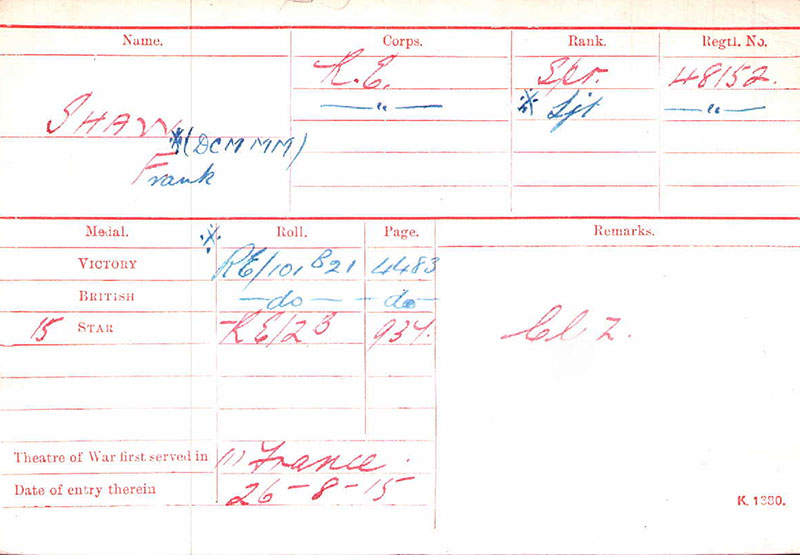 Name. Corps. Rank. Regtl. No.
R.E. Spr. 48152.
—〃— * Sjt —〃—
SHAW
*(DCM MM)
Frank
Medal. * Roll. Page. Remarks.
VICTORY RE/101 B21 4483
BRITISH —do— —do—
15 STAR RE/2B 934. Cl Z.
Theatre of War first served in (1) France.
Date of entry therein 26-8-15
K. 1380.